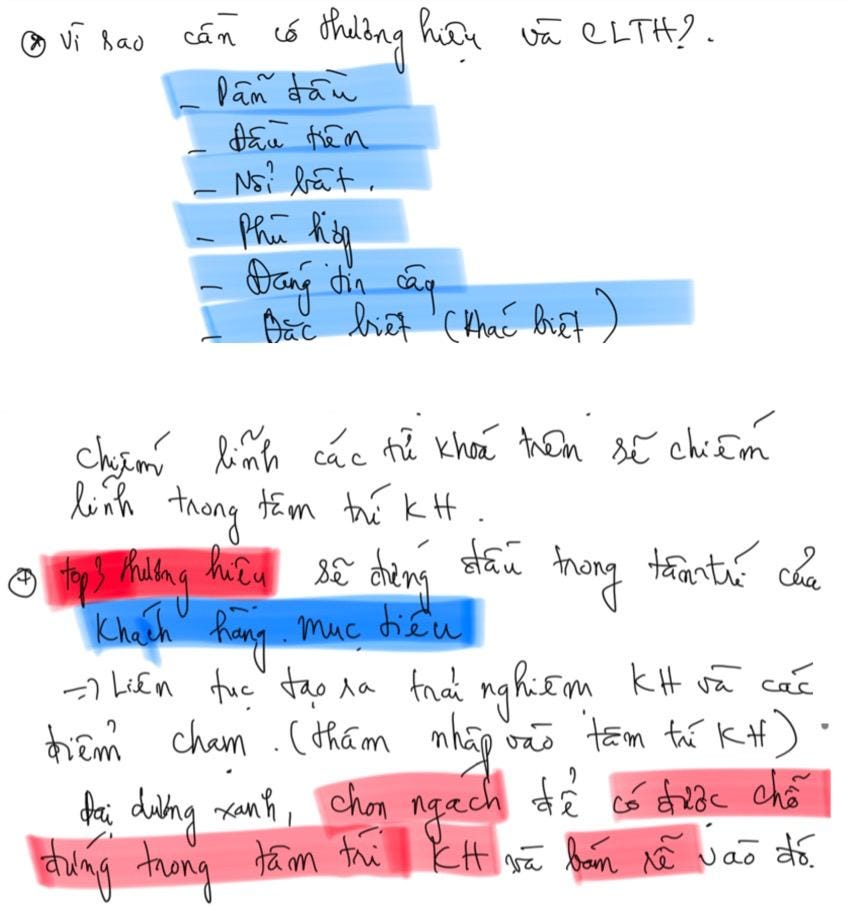 * Vì sao cần có thương hiệu và CLTH?.
- Dẫn đầu
- Đầu tiên
- Nổi bật.
- Phù hợp
- Đáng tin cậy
- Đặc biệt (Khác biệt)
Chiếm lĩnh các từ khoá trên sẽ chiếm
lĩnh trong tâm trí KH.
+ top 3 thương hiệu sẽ đứng đầu trong tâm trí của
Khách hàng mục tiêu
=> Liên tục tạo ra trải nghiệm KH và các
điểm chạm. (thâm nhập vào tâm trí KH)
Đại dương xanh, chọn ngách để có được chỗ
đứng trong tâm trí KH và bám rễ vào đó.